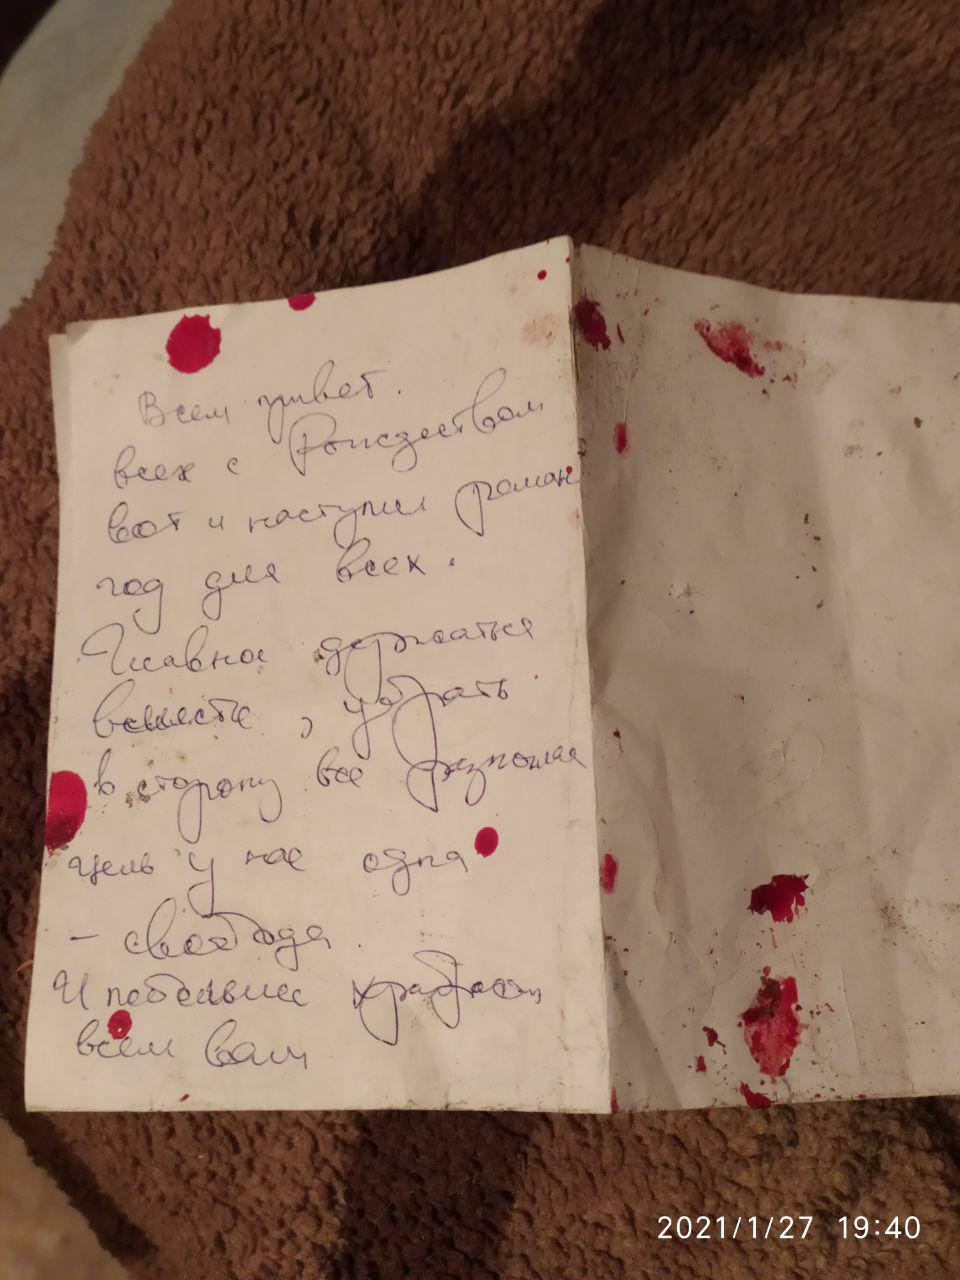 Всем привет.
всех с Рождеством
вот и наступил роман
год для всех.
Главное держаться
вместе, убрать
в сторону все
цель у нас одна
- свобода
И небесных
всем вам
2021/1/27 19:40